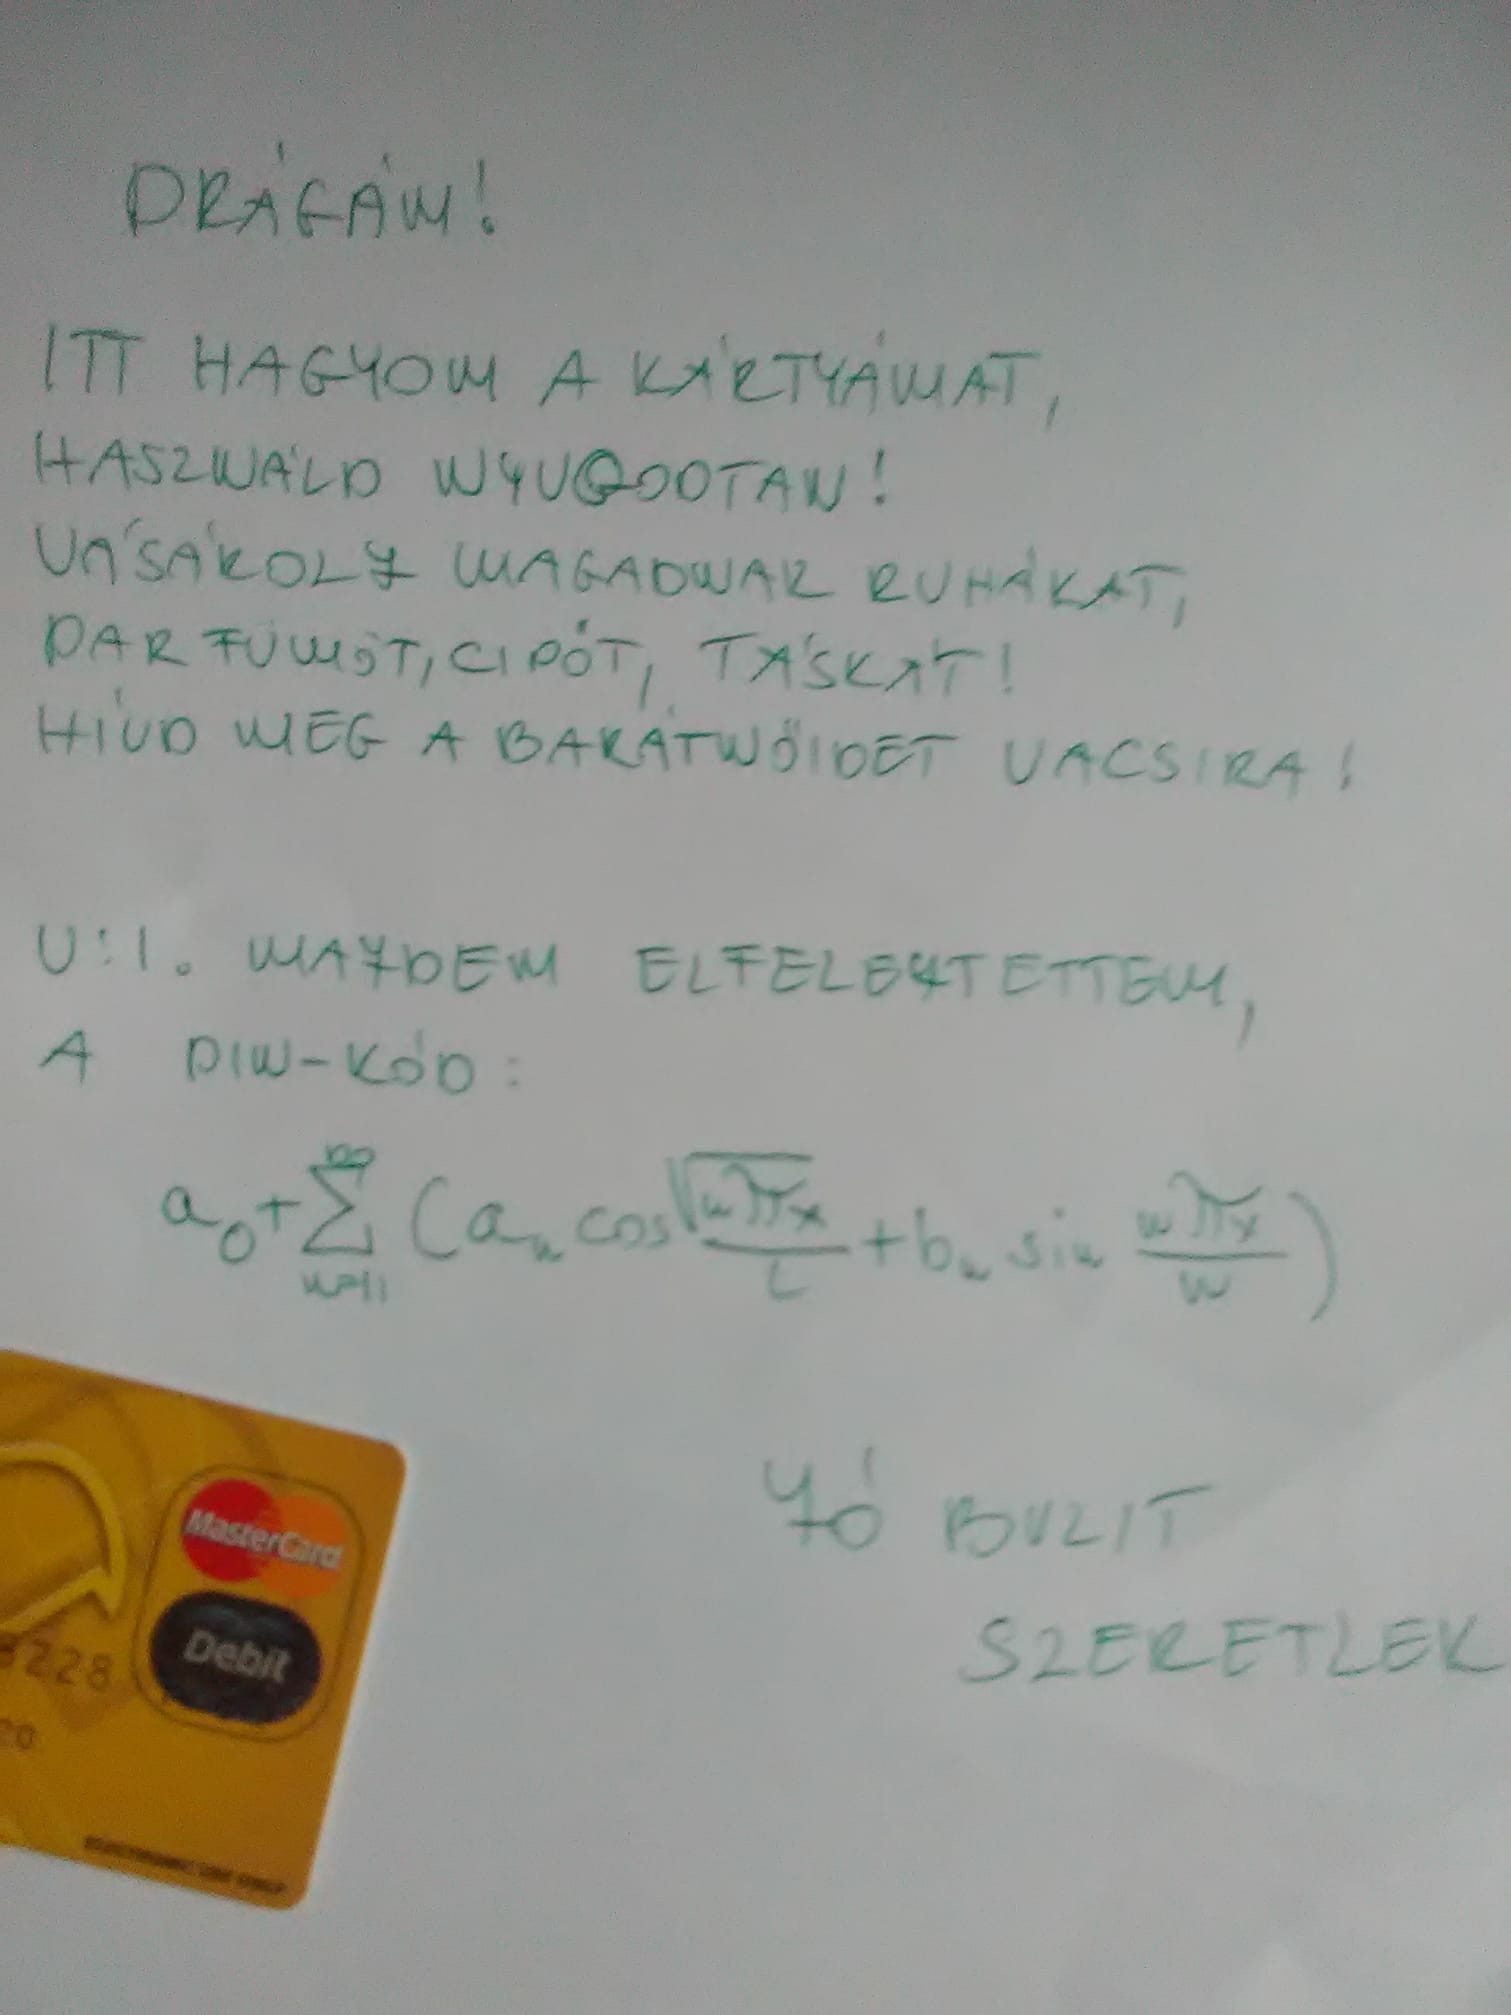 DRÁGÁM!
ITT HAGYOM A KÁRTYÁMAT,
HASZNÁLD NYUGODTAN!
VÁSÁROLJ MAGADNAK RUHÁKAT,
PARFÜMÖT, CIPŐT, TÁSKÁT!
HÍVD MEG A BARÁTNŐIDET VACSIRA!
U:I. MAJDEM ELFELEJTETTEM,
A PIN-KÓD:
a₀+∑(aₙ cos √nπx/L + bₙ sin nπx/n)
∞
n=1
MasterCard
Debit
3228
20
JÓ BULIT
SZERETLEK